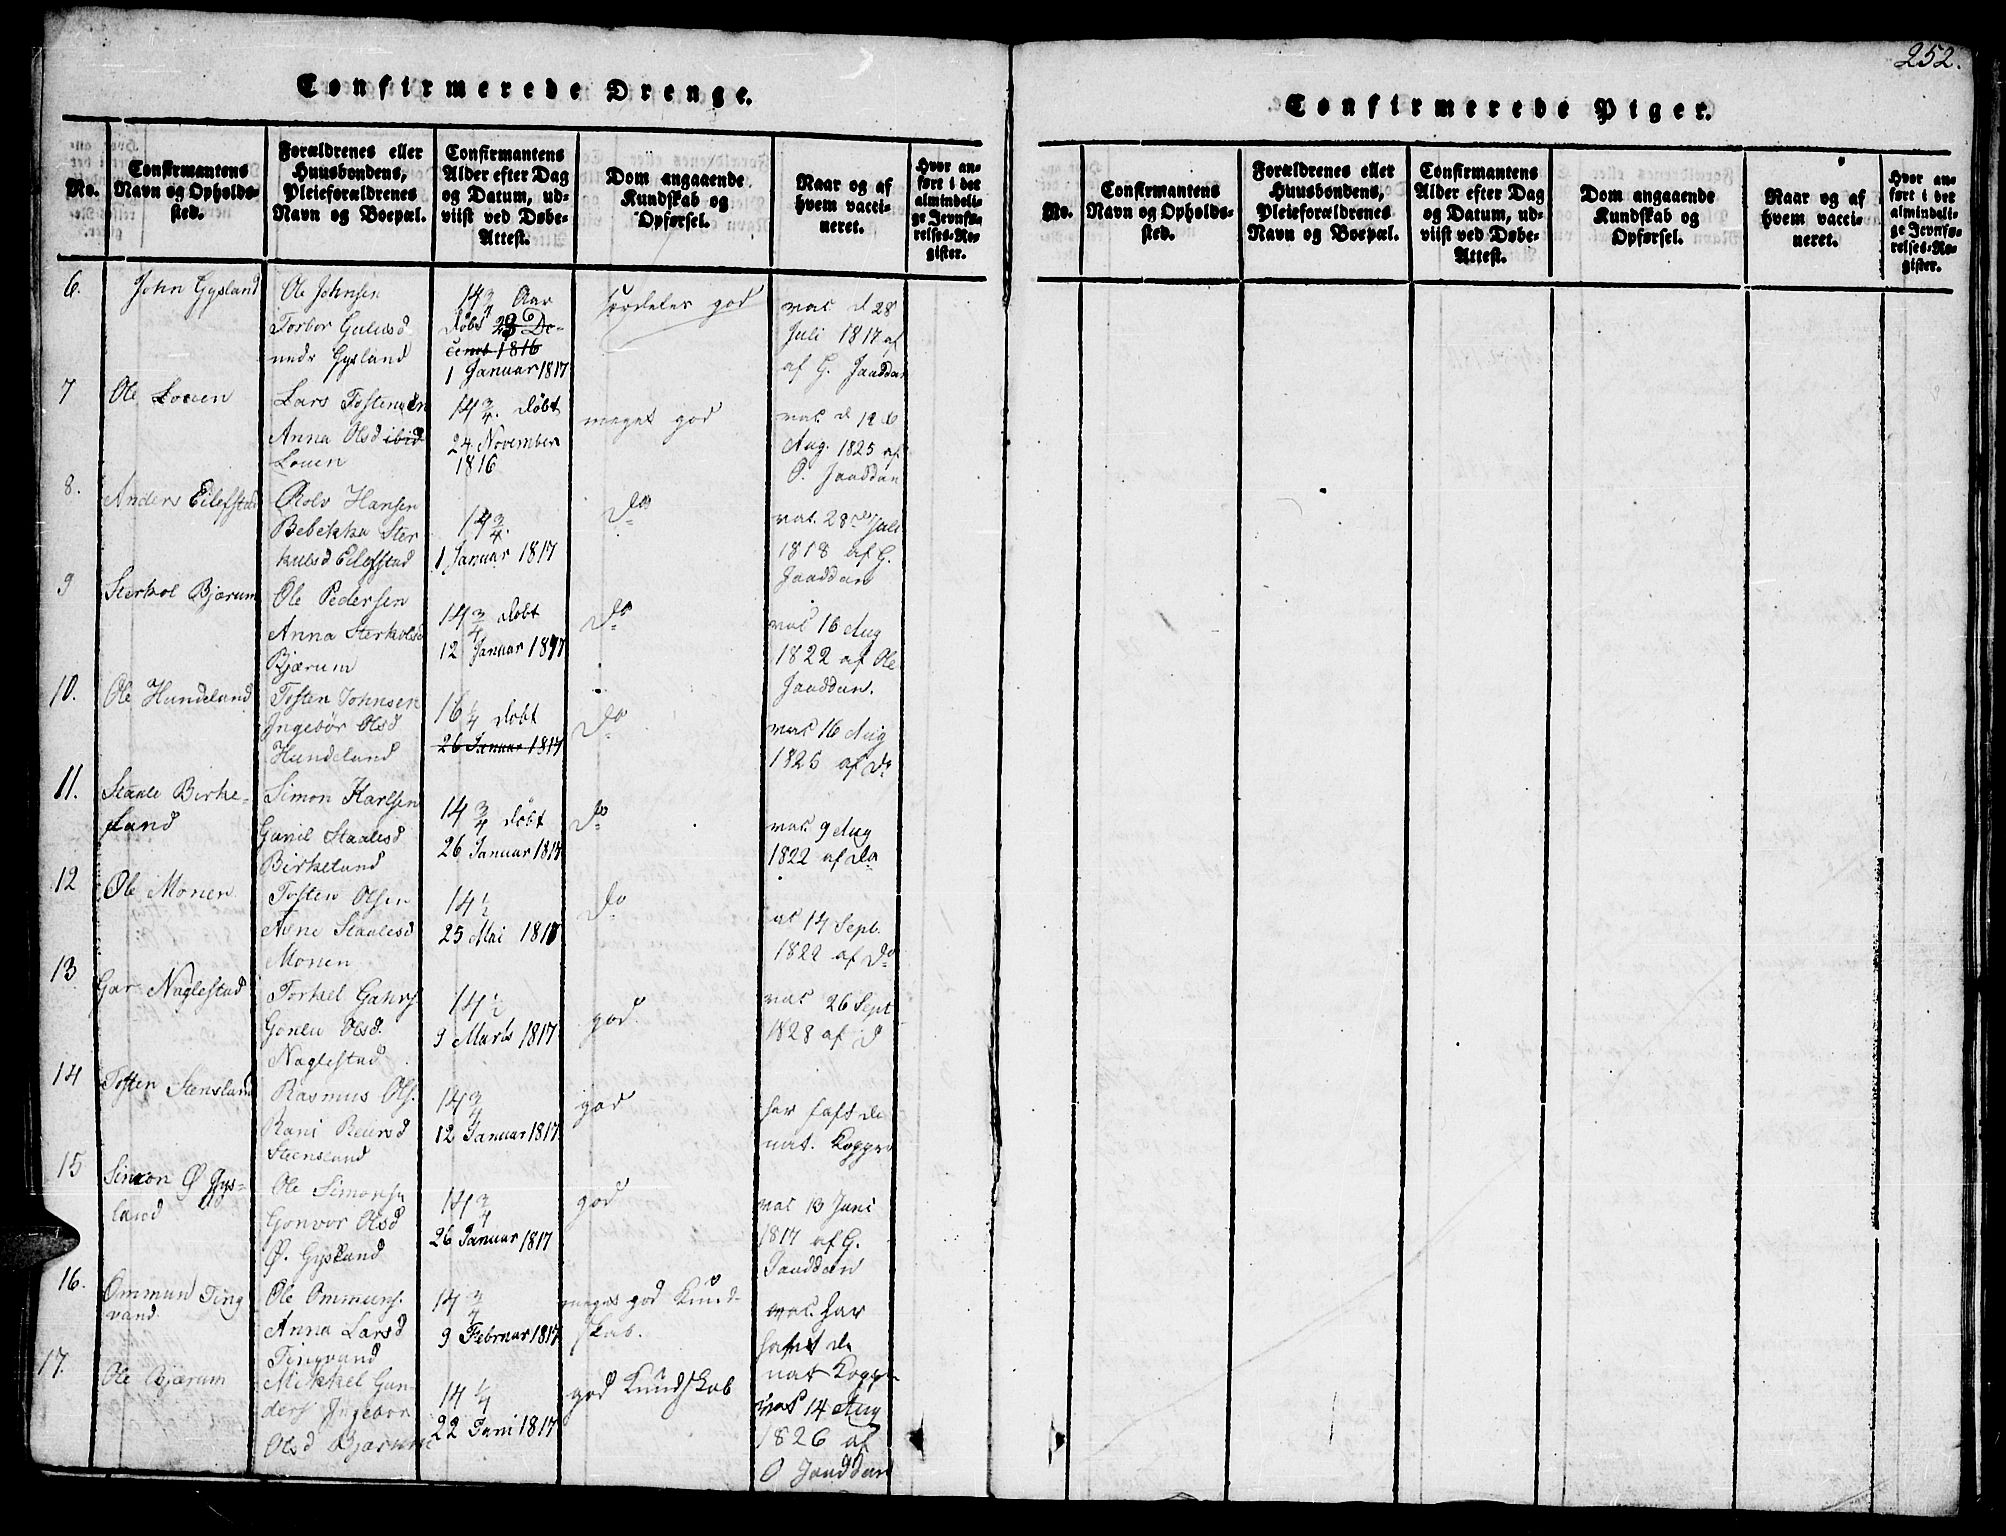 252.
Confirmerede Drenge.
No.
Confirmantens
Navn og Opholds-
sted.
Forældrenes eller
Huusbondens,
Pleieforældrenes
Navn og Boepæl.
Confirmantens
Alder efter Dag
og Datum, ud-
viist ved Døbe-
Attest.
Dom angaaende
Kundskab og
Opførsel.
Naar og af
hvem vacci-
neret.
Hvor an-
ført i det
almindeli-
ge Jevnfø-
relses-Re-
gister.
6.
John Gysland
Ole Johnsen
Torbor
Gysland
14 3/4 Aar
døbt
cemb 1816
1 Januar 1817
god
vac d 28
Juli 1817 af
af G. Jaaddan
7
Ole Louen
Lars Tostensen
Anna Olsd ibid
Louen
14 3/4. døbt
24 November
1816
meget god
vac d
Aug. 1825 af
O. Jaaddan
8.
Anders Eilefstad
Rolv Hansen
Bebekka Ster
kulsd Eilefstad
14 3/4.
1 Januar 1817
do
vac. 28 d Juli
1818 af G.
Jaaddan
9
Sterkol Bjærum
Ole Pedersen
Anna Sterkolsd
Bjærum
14 3/4 døbt
12 Januar 1817
do
vac 16 Aug
1822 af Ole
Jaaddan.
10.
Ole Hundeland
Tosten Johnsen
Ingebor Olsd
Hundeland
16 1/4 døbt
26 Januar 1817
do
vac 16 Aug
1825 af do
11.
Staale Birke-
land
Simon Karlsen
Gunil Staalesd
Birkeland
14 3/4 døbt
26 Januar 1817
do
vac. 9 Aug
1822 af do
12
Ole Monen
Tosten Olsen
Asne Staalesd
Monen
14 1/2
25 Mai 1817
do
vac 14 Sept.
1822 af do
13.
Gar Naglestad
Torkel Gahrs.
Olsd.
Naglestad
14 1/2
9 Marts 1817
god.
vac 26 Sept
1828 af d
14
Tosten Stensland
Rasmus Ols.
Rani
Steensland
14 3/4
12 Januar 1817
god
har haft de
nat. Kopper
15
Simon Ø Gys-
land
Ole Simonsen
Gonvor Olsd
Ø. Gysland
14 3/4
26 Januar 1817
god
vac 13 Juni
1817 af G.
Jaaddan
16.
Ommun Ting
vand
Ole Ommuns.
Anna Larsd
Tingvand
14 3/4
9 Februar 1817
meget god Kund-
skab.
vac. har
havt de
nat Kopper
17.
Ole Bjærum
Mikkel Gun-
ders Ingebor
Olsd Bjærum
14 1/4
22 Juni 1817
god Kundskab
vac 14 Aug
1826 af
O Jaaddan
Confirmerede Piger.
No.
Confirmantens
Navn og Opholds-
sted.
Forældrenes eller
Huusbondens,
Pleieforældrenes
Navn og Boepæl.
Confirmantens
Alder efter Dag
og Datum, ud-
viist ved Døbe-
Attest.
Dom angaaende
Kundskab og
Opførsel.
Naar og af
hvem vacci-
neret.
Hvor an-
ført i det
almindeli-
ge Jevnfø-
relses-Re-
gister.